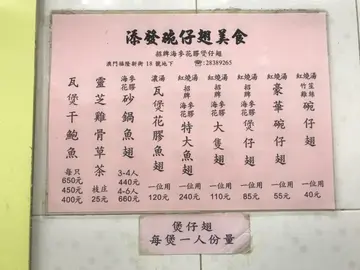 添發碗仔翅美食
招牌海參花膠煲仔翅
澳門福隆新街 18 號地下 ☎:28389265
紅燒湯
竹笙雞絲
碗仔翅
一位用
40元
紅燒湯
豪華碗仔翅
一位用
55元
紅燒湯
招牌
海參花膠
煲仔翅
一位用
85元
紅燒湯
招牌
海參花膠
大隻翅
一位用
110元
紅燒湯
招牌
海參花膠
特大魚翅
一位用
240元
濃湯
瓦煲花膠魚翅
一位用
120元
海參花膠
砂鍋魚翅
3-4人
440元
4-6人
660元
靈芝雞骨草茶
枝庄
25元
瓦煲干鮑魚
每只
650元
450元
400元
煲仔翅
每煲一人份量